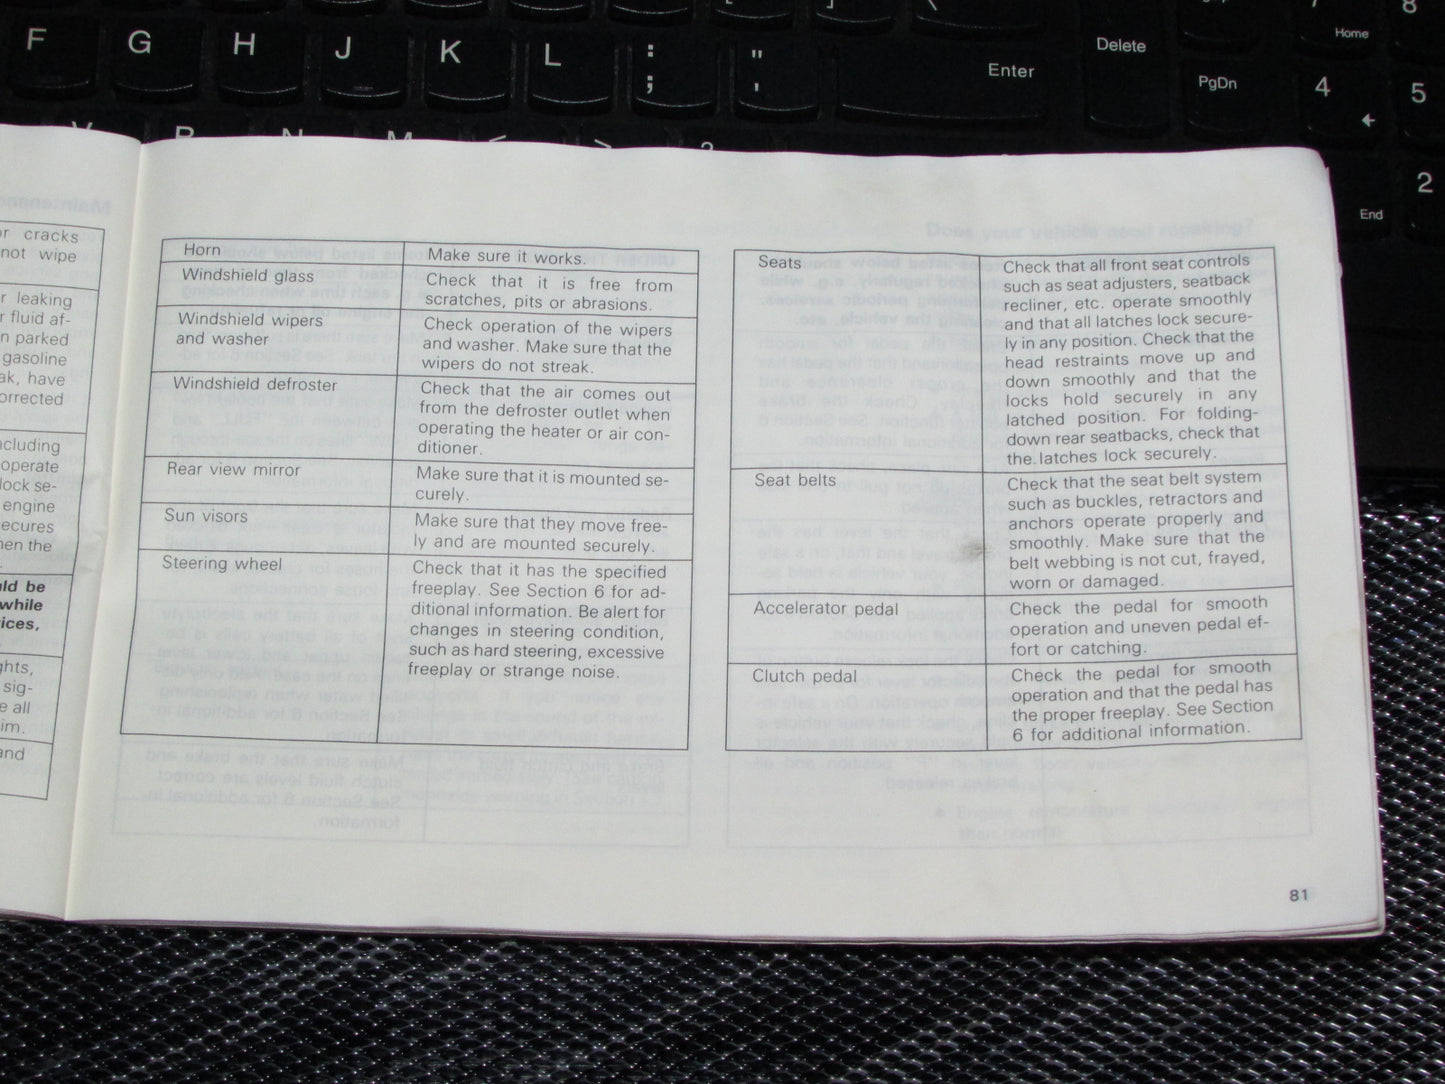 F G H J K L : ; " ' Enter Delete PgDn Home 4 5 8
End 2
r cracks
not wipe
r leaking
r fluid af-
n parked
gasoline
ak, have
orrected
cluding
operate
lock se-
engine
ecures
hen the
ld be
while
ices,
ghts,
sig-
e all
im.
and
Horn
Make sure it works.
Windshield glass
Check that it is free from
scratches, pits or abrasions.
Windshield wipers
and washer
Check operation of the wipers
and washer. Make sure that the
wipers do not streak.
Windshield defroster
Check that the air comes out
from the defroster outlet when
operating the heater or air con-
ditioner.
Rear view mirror
Make sure that it is mounted se-
curely.
Sun visors
Make sure that they move free-
ly and are mounted securely.
Steering wheel
Check that it has the specified
freeplay. See Section 6 for ad-
ditional information. Be alert for
changes in steering condition,
such as hard steering, excessive
freeplay or strange noise.
Seats
Check that all front seat controls
such as seat adjusters, seatback
recliner, etc. operate smoothly
and that all latches lock secure-
ly in any position. Check that the
head restraints move up and
down smoothly and that the
locks hold securely in any
latched position. For folding-
down rear seatbacks, check that
the latches lock securely.
Seat belts
Check that the seat belt system
such as buckles, retractors and
anchors operate properly and
smoothly. Make sure that the
belt webbing is not cut, frayed,
worn or damaged.
Accelerator pedal
Check the pedal for smooth
operation and uneven pedal ef-
fort or catching.
Clutch pedal
Check the pedal for smooth
operation and that the pedal has
the proper freeplay. See Section
6 for additional information.
81